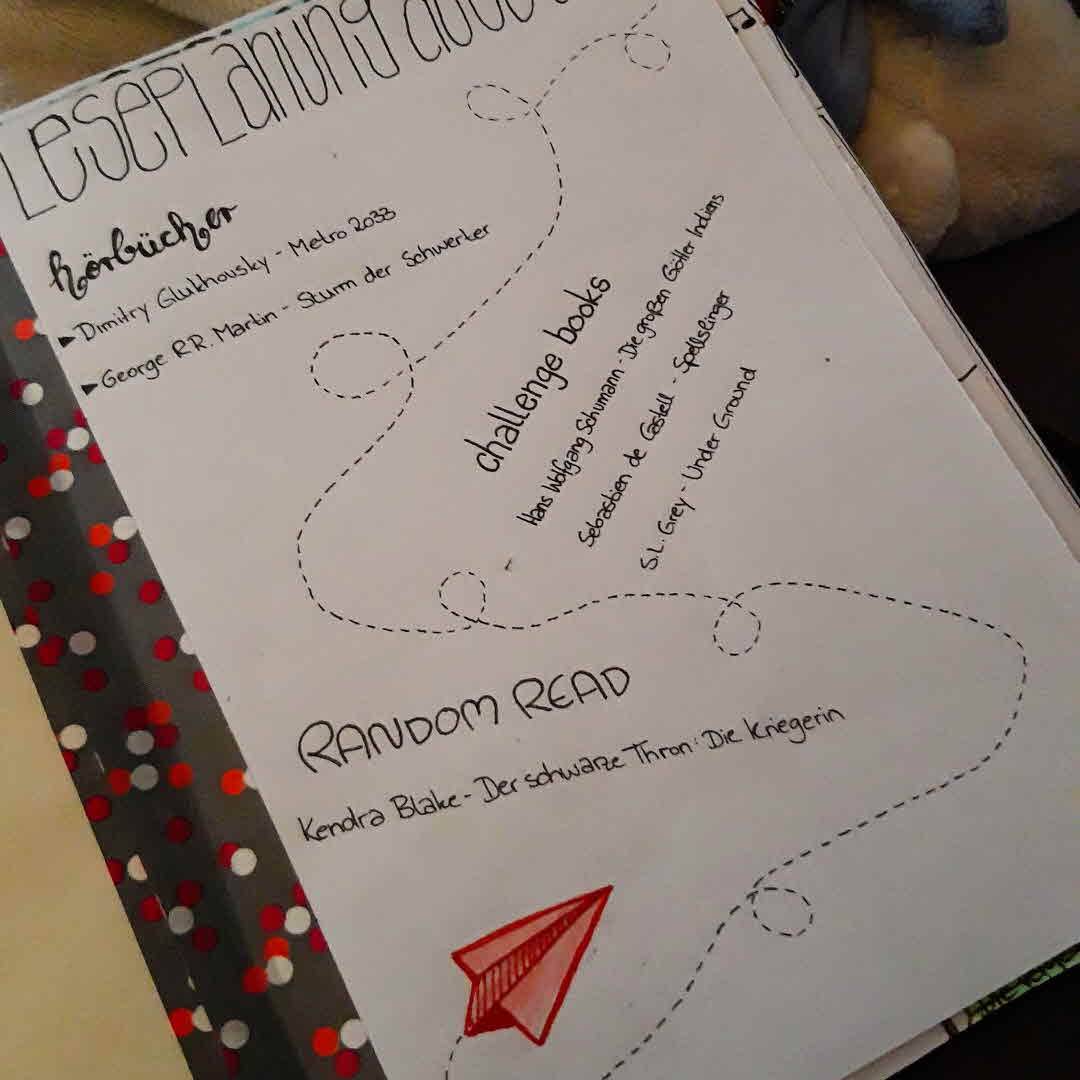 Leseplanung
hörbücher
Dimitry Glukhovsky - Metro 2033
George R.R. Martin - Sturm der Schwerter
challenge books
Hans Wolfgang Schumann - Die großen Götter Indiens
Sebastien de Castell - Spellslinger
S.L. Grey - Under Ground
RANDOM READ
Kendra Blake - Der schwarze Thron: Die Kriegerin